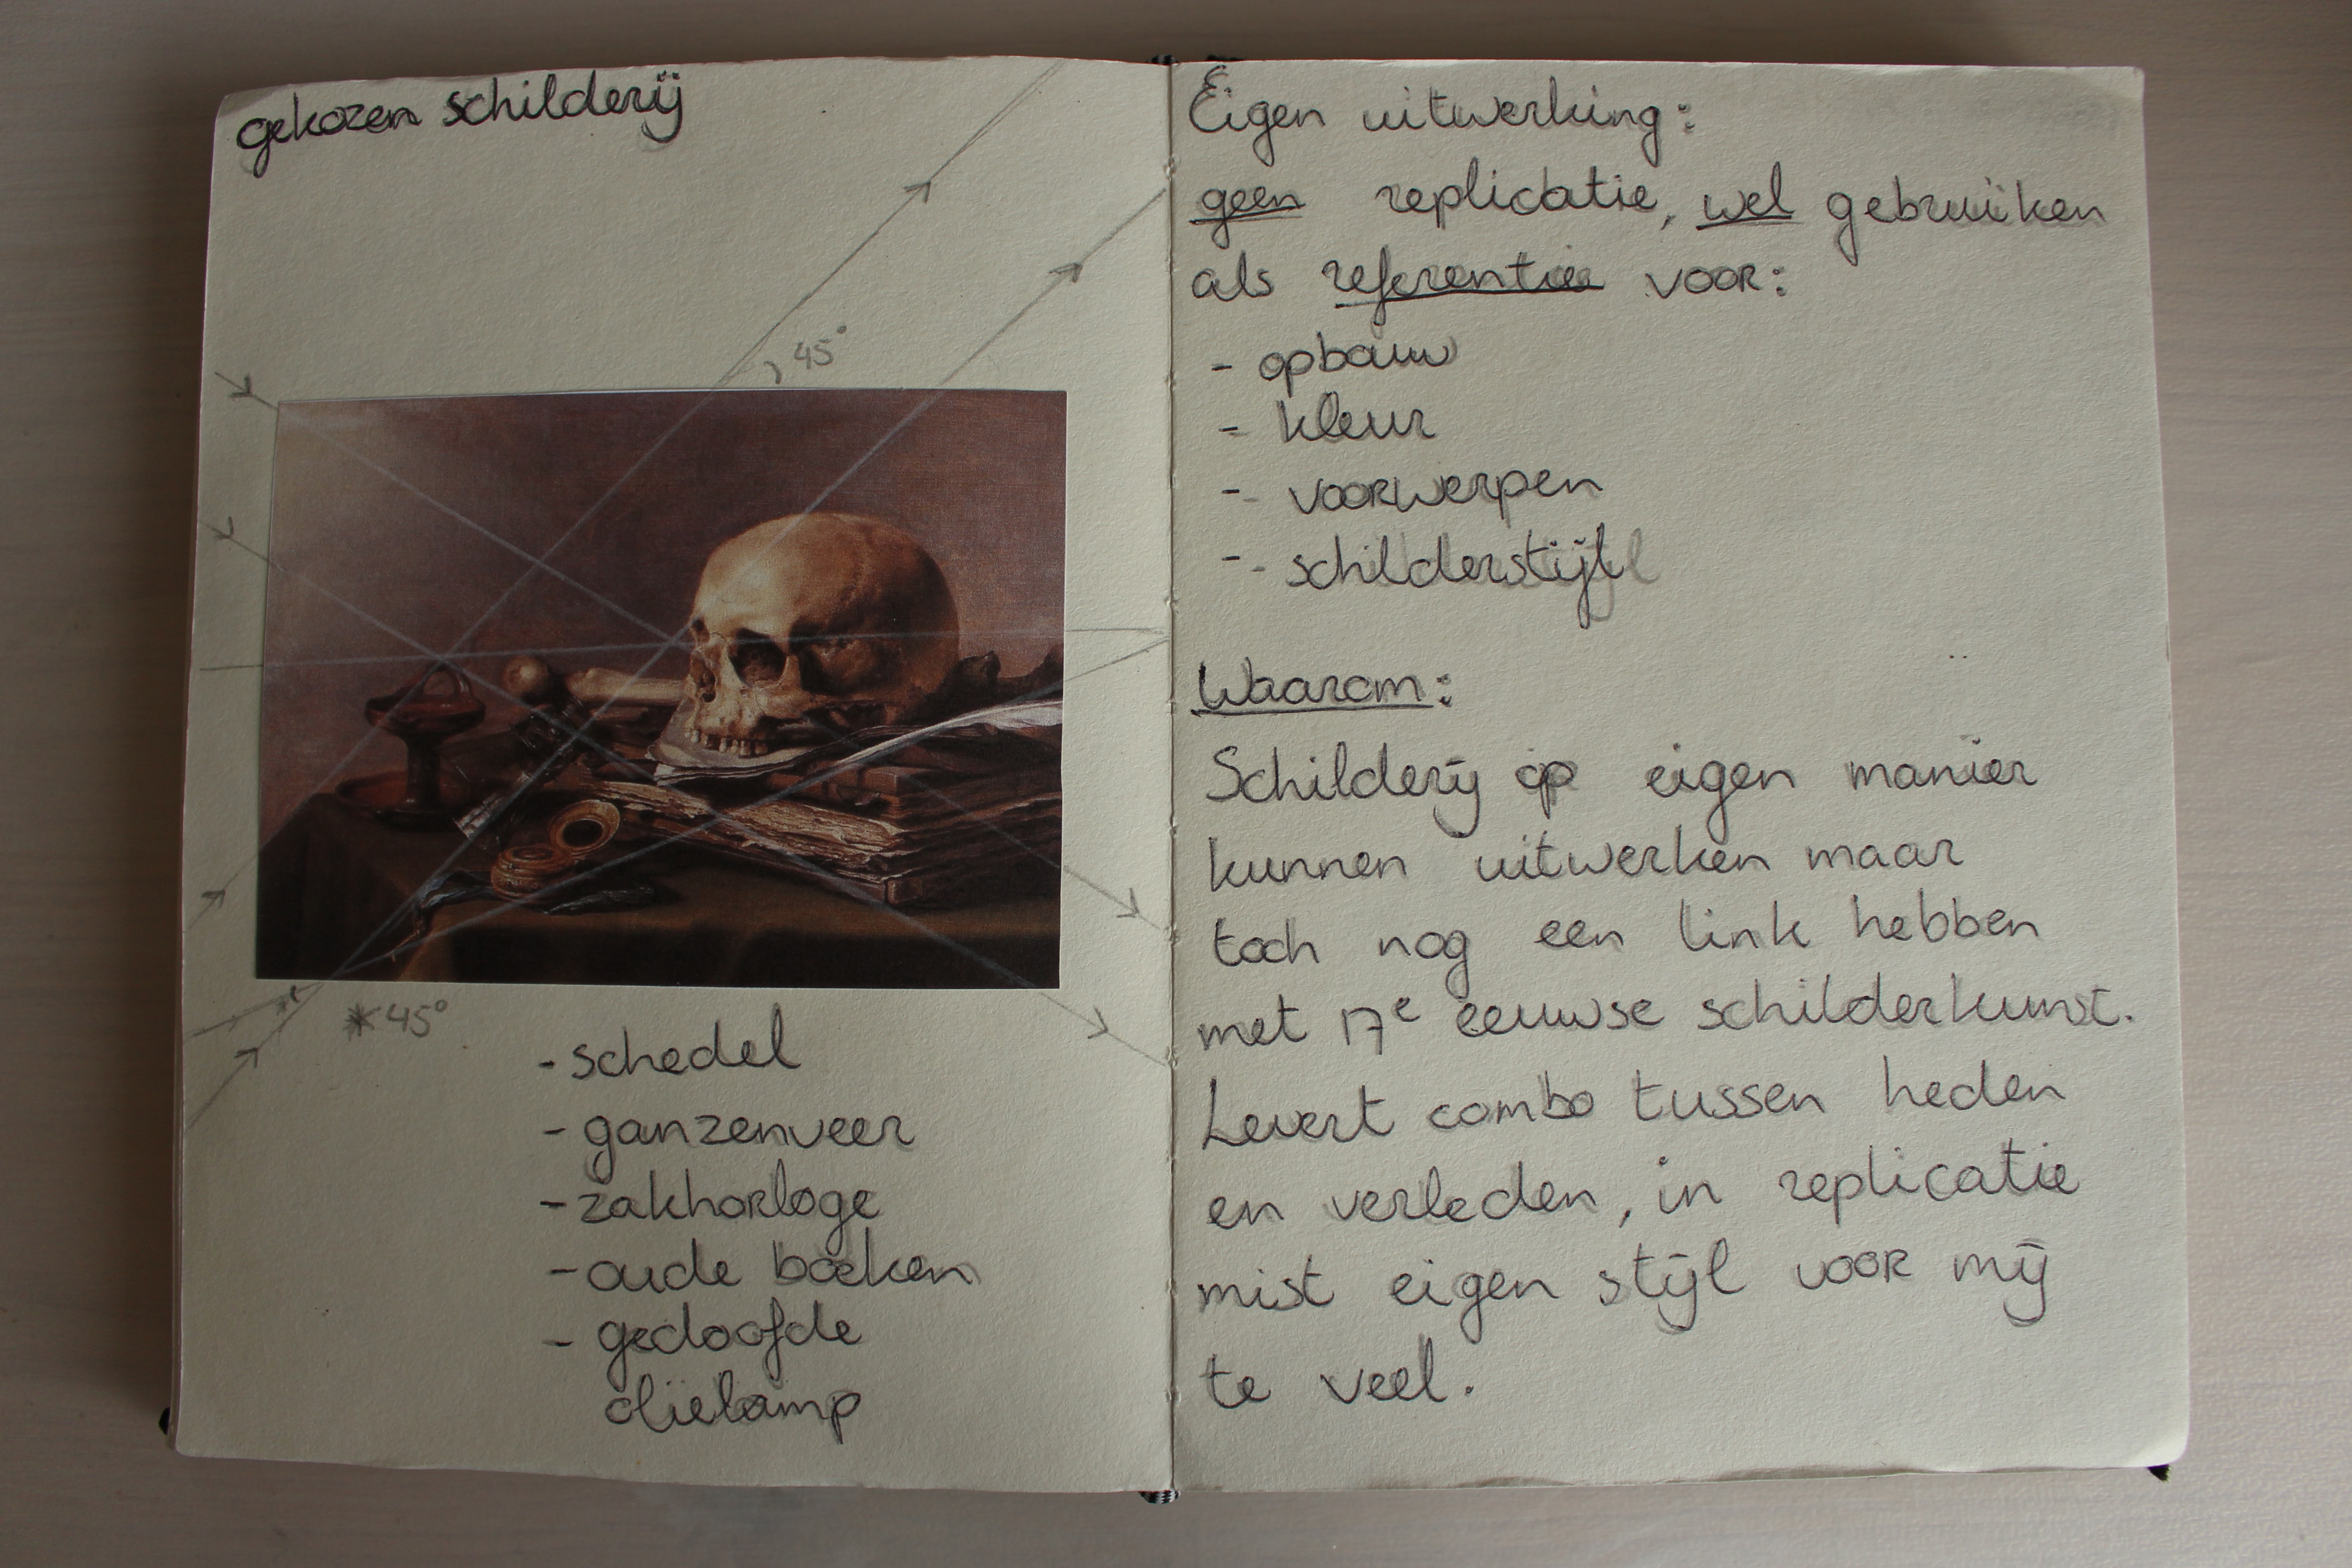 gekozen schilderij
45°
*45°
- schedel
- ganzenveer
- zakhorloge
- oude boeken
- gedoofde
olielamp
Eigen uitwerking:
geen replicatie, wel gebruiken
als referentie voor:
- opbouw
- kleur
- voorwerpen
- schilderstijl
Waarom:
Schilderij op eigen manier
kunnen uitwerken maar
toch nog een link hebben
met 17e eeuwse schilderkunst.
Levert combo tussen heden
en verleden, in replicatie
mist eigen stijl voor mij
te veel.